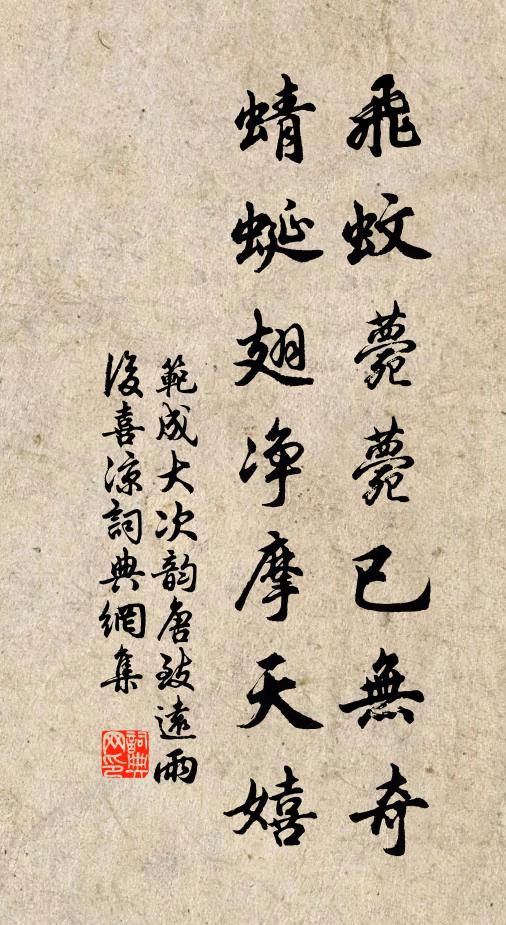 飛蚊薨薨已無奇
蜻蜓翅净摩天嬉
範成大次韵唐致遠雨
後喜凉詞典網集
詞典網印